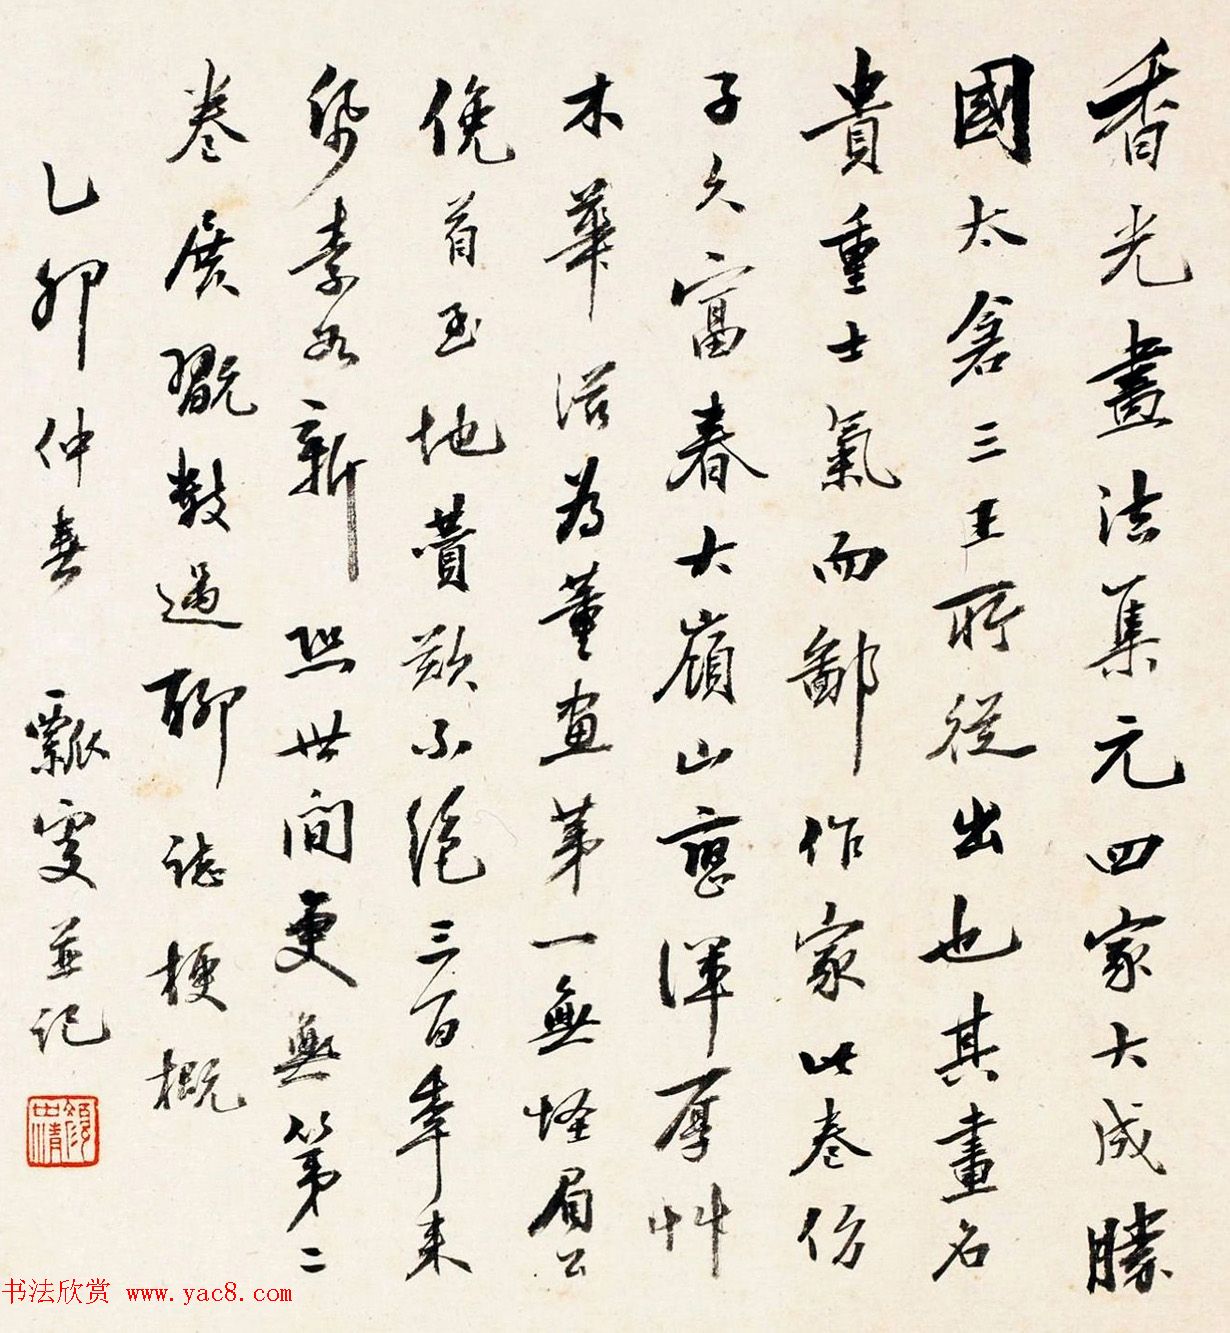 香光畫法集元四家大成勝
國太倉三王所從出也其畫名
貴重士氣而鄙作家此卷仿
子久富春大嶺山巒渾厚艸
木華滋為董畫第一無怪眉公
俛首至地賛歎不絕三百年來
紙素如新恐世間更無第二
卷展翫數過聊誌梗概
乙卯仲春 瓢叟並記
書法欣赏 www.yac8.com